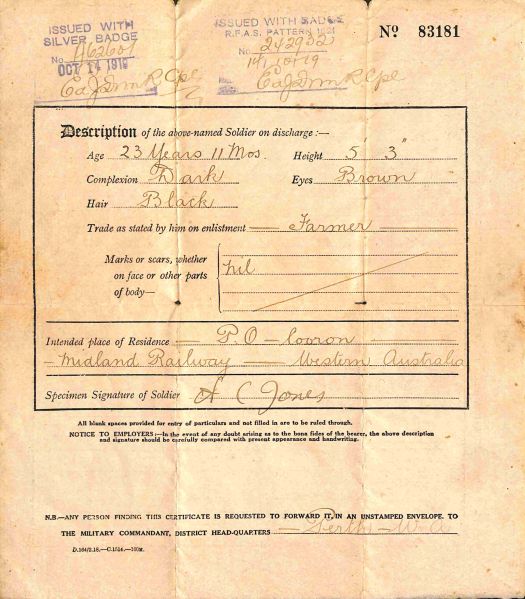 ISSUED WITH
SILVER BADGE
No 462601
OCT 14 1919
ISSUED WITH BADGE
R.F.A.S. PATTERN
No 242932
14/10/19
Nº 83181
Description of the above-named Soldier on discharge:—
Age 23 Years 11 Mos. Height 5' 3"
Complexion Dark Eyes Brown
Hair Black
Trade as stated by him on enlistment Farmer
Marks or scars, whether
on face or other parts
of body— nil
Intended place of Residence P.O
Midland Railway Western Australia
Specimen Signature of Soldier A C Jones
All blank spaces provided for entry of particulars and not filled in are to be ruled through.
NOTICE TO EMPLOYERS:—In the event of any doubt arising as to the bona fides of the bearer, the above description
and signature should be carefully compared with present appearance and handwriting.
N.B.—ANY PERSON FINDING THIS CERTIFICATE IS REQUESTED TO FORWARD IT, IN AN UNSTAMPED ENVELOPE, TO
THE MILITARY COMMANDANT, DISTRICT HEAD-QUARTERS Perth W.A
D.164/2.18.—C.1514.—100m.